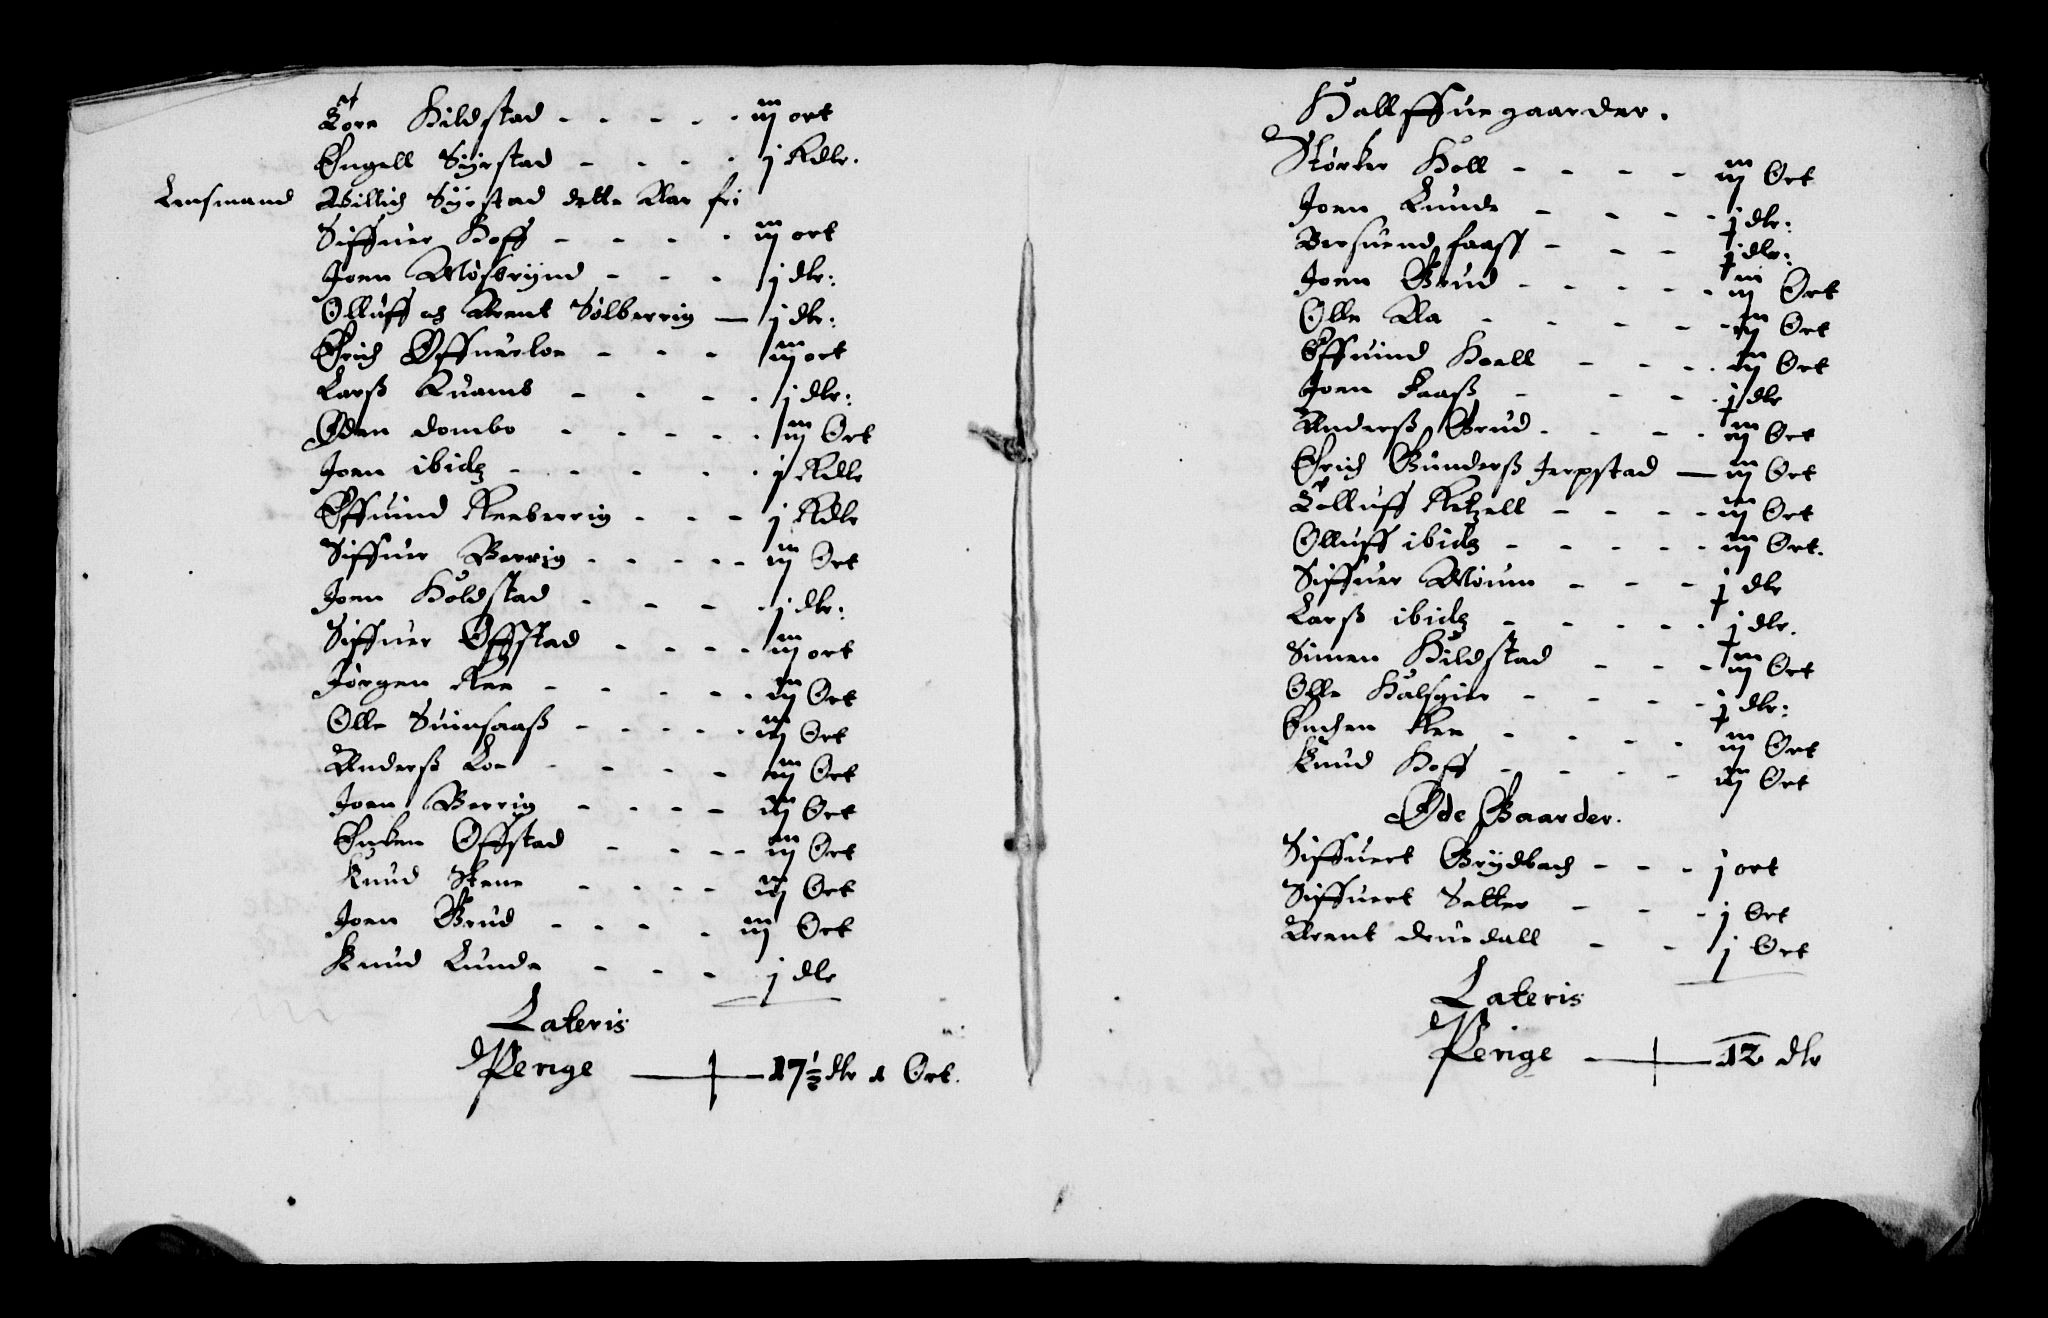 Tore Kildstad - - - - - iij ort
Engell Syrstad - - - - j Rdlr.
Lensmand Willich Syrstad dette Aar fri
Siffuer Hoff - - - - iij ort
Joen Mosbrynd - - - j dlr:
Olluff och Arent Solberrig — j dlr:
Erich Offuerloe - - - iij ort
Larß Quamb - - - - j dlr:
Oden dombo - - - - - iij Ort
Joen ibidz - - - - - j Rdlr
Effuind Reeberrig - - - j Rdlr
Siffuer Berrig - - - - - iij Ort
Joen Holdstad - - - - j dlr:
Siffuer Offstad - - - - iij ort
Jørgen Ree - - - - - iij Ort
Olle Suinsaaß - - - - - iij Ort
Anderß Loe - - - - iij Ort
Joen Berrig - - - - iij Ort
Encken Offstad - - - - iij Ort
Knud Stene - - - - iij Ort
Joen Grud - - - - iij Ort
Knud Lunde - - - j dlr
Lateris
Penge — 17½ dlr 1 Ort.
Hallffue gaarder.
Størker Holl - - - - iij Ort
Joen Lunde - - - - j dlr:
Bersuend faass - - - j dlr:
Joen Grud - - - - - iij Ort
Olle Aa - - - - - iij Ort
Effuind Hoell - - - - iij Ort
Joen Faaß - - - - j dlr
Anderß Grud - - - - iij Ort
Erich Gunderß Jerpstad — iij Ort
Tolluff Ketzell - - - - iij Ort
Olluff ibidz - - - - - iij Ort.
Siffuer Moium - - - j dlr
Larß ibidz - - - - - j dlr.
Simen Kildstad - - - iij Ort
Olle Halsgier - - - - j dlr:
Enchen Ree - - - - iij Ort
Knud Hoff - - - - iij Ort
Øde Gaarder.
Siffuert Brydbach - - - j ort
Siffuert Setter - - - j Ort
Arent driuedall - - j Ort
Lateris
Penge — 12 dlr